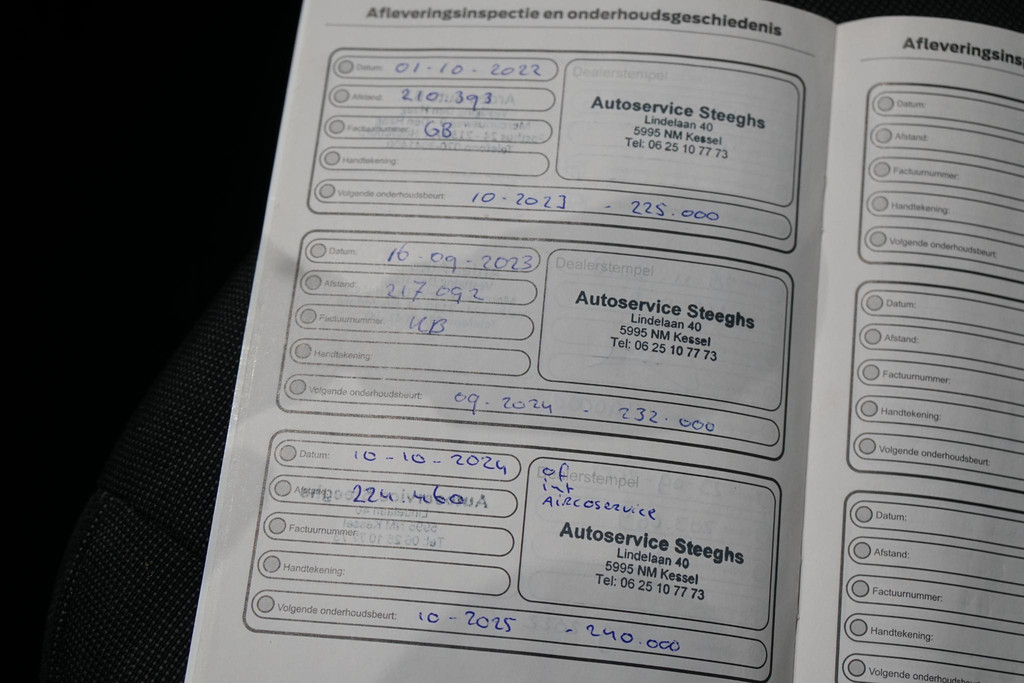 Afleveringsinspectie en onderhoudsgeschiedenis
Datum: 01-10-2022
Afstand: 210.393
Factuurnummer: GB
Handtekening:
Volgende onderhoudsbeurt: 10-2023 - 225.000
Dealerstempel
Autoservice Steeghs
Lindelaan 40
5995 NM Kessel
Tel: 06 25 10 77 73
Datum: 16-09-2023
Afstand: 217.092
Factuurnummer:
Handtekening:
Volgende onderhoudsbeurt: 09-2024 - 232.000
Dealerstempel
Autoservice Steeghs
Lindelaan 40
5995 NM Kessel
Tel: 06 25 10 77 73
Datum: 10-10-2024
Afstand: 224.460
Factuurnummer:
Handtekening:
Volgende onderhoudsbeurt: 10-2025 - 240.000
Dealerstempel
of
int
Aircoservice
Autoservice Steeghs
Lindelaan 40
5995 NM Kessel
Tel: 06 25 10 77 73
Datum:
Afstand:
Factuurnummer:
Handtekening:
Volgende onderhoudsbeurt:
Datum:
Afstand:
Factuurnummer:
Handtekening:
Volgende onderhoudsbeurt:
Datum:
Afstand:
Factuurnummer:
Handtekening:
Volgende onderhoudsbeurt: